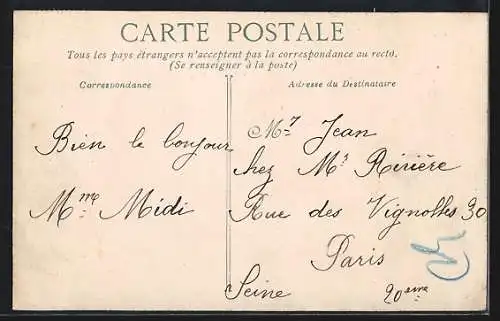 CARTE POSTALE
Tous les pays étrangers n'acceptent pas la correspondance au recto.
(Se renseigner à la poste)
Correspondance
Adresse du Destinataire
Bien le bonjour
Mme Midi
Mr Jean
chez Mr Rivière
Rue des Vignolles 30
Paris
Seine
20eme